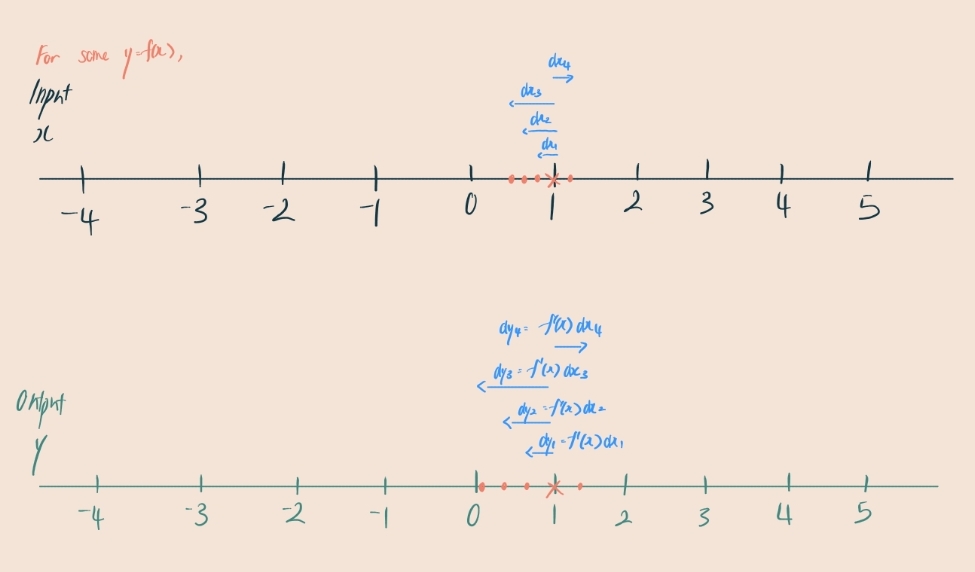 For some y=f(x),
Input
x
dx₄
dx₃
dx₂
dx₁
-4 -3 -2 -1 0 1 2 3 4 5
dy₄= f'(x) dx₄
dy₃ = f'(x) dx₃
dy₂ = f'(x) dx₂
dy₁ = f'(x) dx₁
Output
y
-4 -3 -2 -1 0 1 2 3 4 5